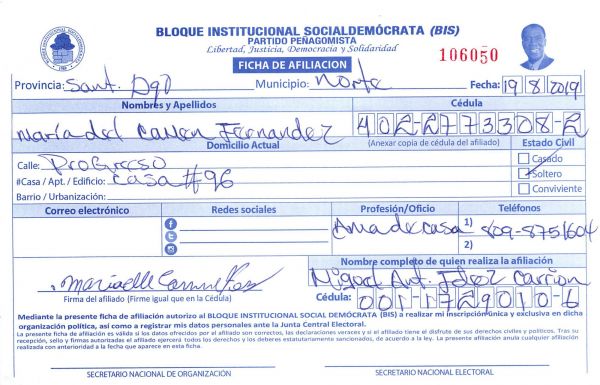 BLOQUE INSTITUCIONAL SOCIALDEMÓCRATA (BIS)
PARTIDO PEÑAGOMISTA
Libertad, Justicia, Democracia y Solidaridad
FICHA DE AFILIACION
106050
Provincia: Sant. Dgo Municipio: Norte Fecha: 19 8 2019
Nombres y Apellidos Cédula
María del Carmen Fernandez 402-2773308-2
Domicilio Actual (Anexar copia de cédula del afiliado) Estado Civil
Calle: Progreso Casado
#Casa / Apt. / Edificio: Casa #96 Soltero
Barrio / Urbanización: Conviviente
Correo electrónico Redes sociales Profesión/Oficio Teléfonos
Ama de casa 1) 809-8751604
2)
Nombre completo de quien realiza la afiliación
Miguel Ant. Carrion
Firma del afiliado (Firme igual que en la Cédula) Cédula: 001-1729010-6
Mediante la presente ficha de afiliación autorizo al BLOQUE INSTITUCIONAL SOCIAL DEMÓCRATA (BIS) a realizar mi inscripción única y exclusiva en dicha
organización política, así como a registrar mis datos personales ante la Junta Central Electoral.
La presente ficha de afiliación es válida si los datos ofrecidos por el afiliado son correctos, las declaraciones veraces y si el afiliado tiene el disfrute de sus derechos civiles y políticos. Tras su
recepción, sello y firmas autorizadas el afiliado ejercerá todos los derechos y los deberes estatutariamente sancionados, de acuerdo a la ley. La presente afiliación anula cualquier afiliación
realizada con anterioridad a la fecha que aparece en esta ficha.
SECRETARIO NACIONAL DE ORGANIZACIÓN SECRETARIO NACIONAL ELECTORAL